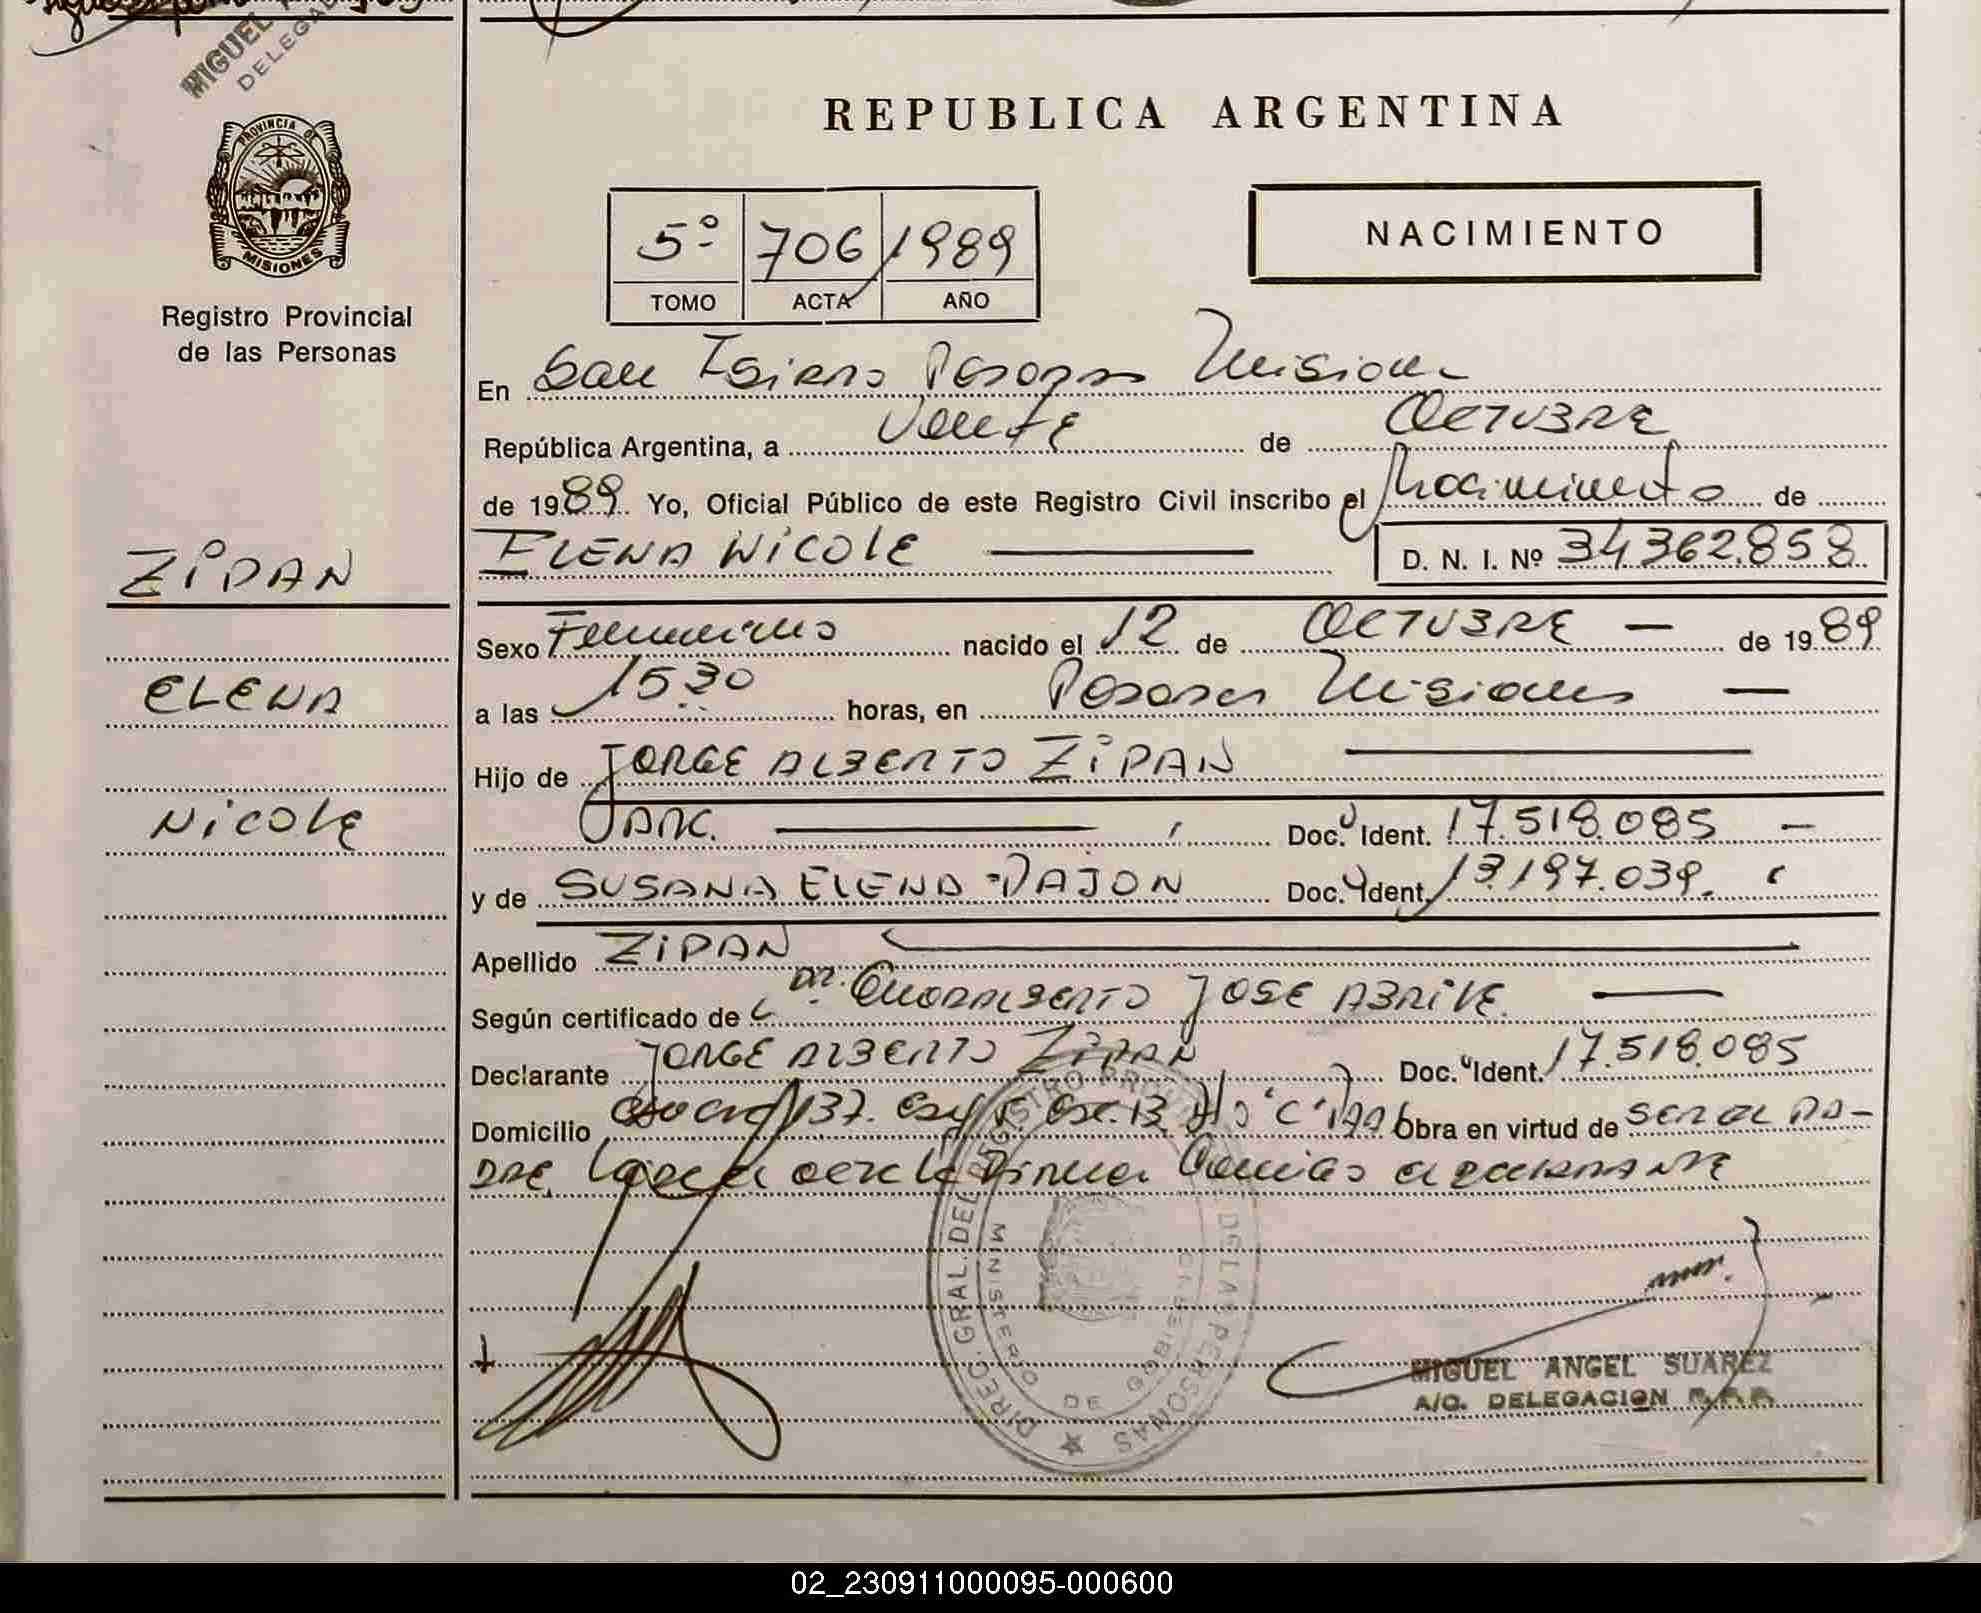 MIGUEL
DELEGA
PROVINCIA DE
MISIONES
Registro Provincial
de las Personas
ZIPAN
ELENA
NICOLE
REPUBLICA ARGENTINA
5º 706 1989
TOMO ACTA AÑO
NACIMIENTO
En San Isidro Posadas Misiones
República Argentina, a Veinte de OCTUBRE
de 1989 Yo, Oficial Público de este Registro Civil inscribo el Nacimiento de
ELENA NICOLE D. N. I. Nº 34.362.858
Sexo Femenino nacido el 12 de OCTUBRE — de 1989
a las 15.30 horas, en Posadas Misiones —
Hijo de JORGE ALBERTO ZIPAN
ARG. Doc. Ident. 17.518.085 —
y de SUSANA ELENA DAJON Doc. Ident. 13.197.039.
Apellido ZIPAN
Según certificado de Dr. JOSE
Declarante JORGE ALBERTO ZIPAN Doc. Ident. 17.518.085
Domicilio 137. 13 "C" Obra en virtud de SER EL PA-
DRE
DIREC. GRAL. DEL REGISTRO PROV. DE LAS PERSONAS
MINISTERIO DE GOBIERNO
MIGUEL ANGEL SUAREZ
A/C. DELEGACION R.P.P.
02_230911000095-000600